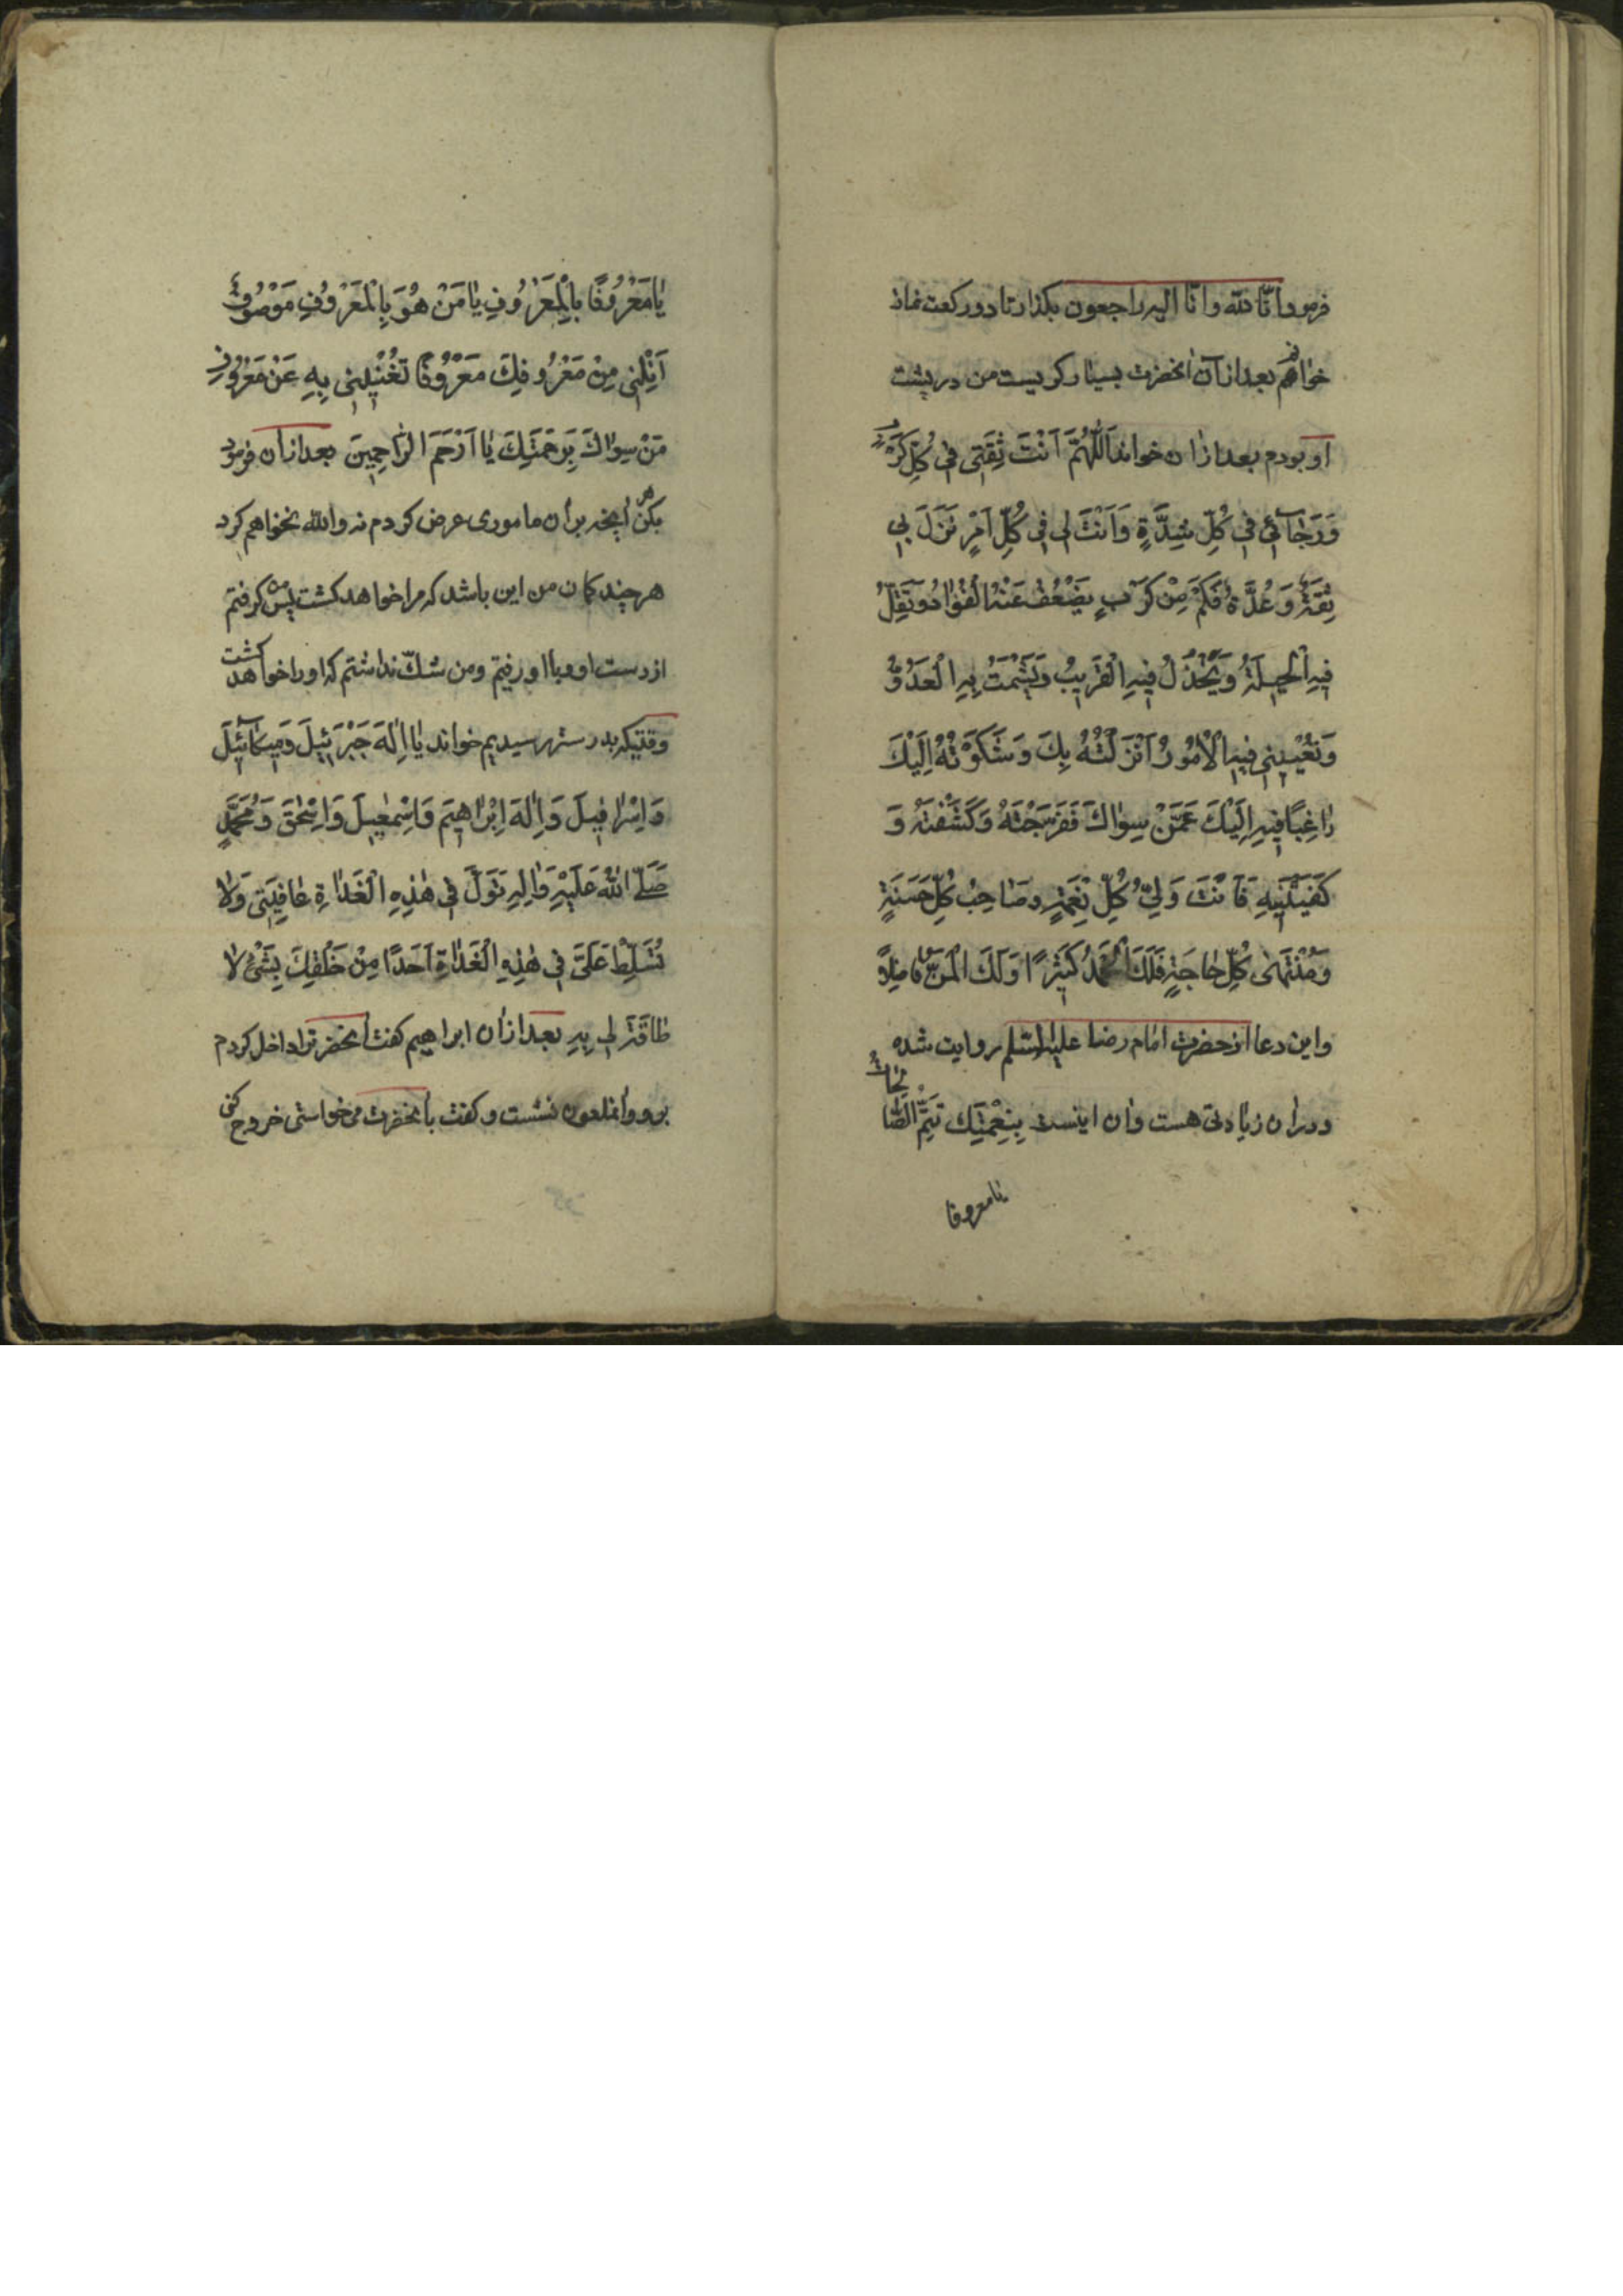 فرمود انّا لله وانّا الیه راجعون بکذار تا دو رکعت نماز
خواهم بعد ازآن آنحضرت بسیار کریست من در پشت
او بودم بعد ازان خواند اَللّٰهُمَّ اَنْتَ ثِقَتِی فِی کُلِّ کَرْبٍ
وَرَجٰائِی فِی کُلِّ شِدَّةٍ وَاَنْتَ لِی فِی کُلِّ اَمْرٍ نَزَلَ بِی
ثِقَةٌ وَعُدَّةٌ فَکَمْ مِنْ کَرْبٍ یَضْعُفُ عَنْهُ الْفُؤٰادُ وَتَقِلُّ
فِیهِ الْحِیلَةُ وَیَخْذُلُ فِیهِ الْقَرِیبُ وَیَشْمَتُ بِهِ الْعَدُوُّ
وَتُعْیِینِی فِیهِ الْاُمُورُ اَنْزَلْتُهُ بِکَ وَشَکَوْتُهُ اِلَیْکَ
رٰاغِبًا فِیهِ اِلَیْکَ عَمَّنْ سِوٰاکَ فَفَرَّجْتَهُ وَکَشَفْتَهُ وَ
کَفَیْتَنِیهِ فَاَنْتَ وَلِیُّ کُلِّ نِعْمَةٍ وصٰاحِبُ کُلِّ حَسَنَةٍ
وَمُنْتَهٰی کُلِّ حٰاجَةٍ فَلَکَ الْحَمْدُ کَثِیرًا وَلَکَ الْمَنُّ فٰاضِلًا
واین دعا از حضرت امام رضا علیه السّلم روایت شده
ودران زیادتی هست وان اینست بِنِعْمَتِکَ تَتِمُّ الصّٰالِحٰاتُ
یامعروفا
یٰامَعْرُوفًا بِالْمَعْرُوفِ یٰامَنْ هُوَ بِالْمَعْرُوفِ مَوْصُوفٌ
اَنِلْنِی مِنْ مَعْرُوفِکَ مَعْرُوفًا تُغْنِینِی بِهِ عَنْ مَعْرُوفِ
مَنْ سِوٰاکَ بِرَحْمَتِکَ یٰا اَرْحَمَ الرّٰاحِمِینَ بعد ازان فرمود
بکن هر آنچه بران ماموری عرض کردم نه والله نخواهم کرد
هر چند کمان من این باشد که مرا خواهد کشت پس من کرفتم
از دست او وبا او رفتم ومن شکّ نداشتم که او را خواهد کشت
وقتیکه بدر ستر رسیدیم خواند یٰا اِلٰهَ جَبْرَئِیلَ وَمِیکٰائِیلَ
وَاِسْرٰافِیلَ وَاِلٰهَ اِبْرٰاهِیمَ وَاِسْمٰعِیلَ وَاِسْحٰقَ وَمُحَمَّدٍ
صَلَّی اللهُ عَلَیْهِ وَاٰلِهِ تَوَلَّ فِی هٰذِهِ الْغَدٰاةِ عٰافِیَتِی وَلٰا
تُسَلِّطْ عَلَیَّ فِی هٰذِهِ الْغَدٰاةِ اَحَدًا مِنْ خَلْقِکَ بِشَیْءٍ لٰا
طٰاقَةَ لِی بِهِ بعد ازان ابراهیم کفت آنحضرترا داخل کردم
برو وانملعون نشست وکفت بآنحضرت می خواستی خروج کنی